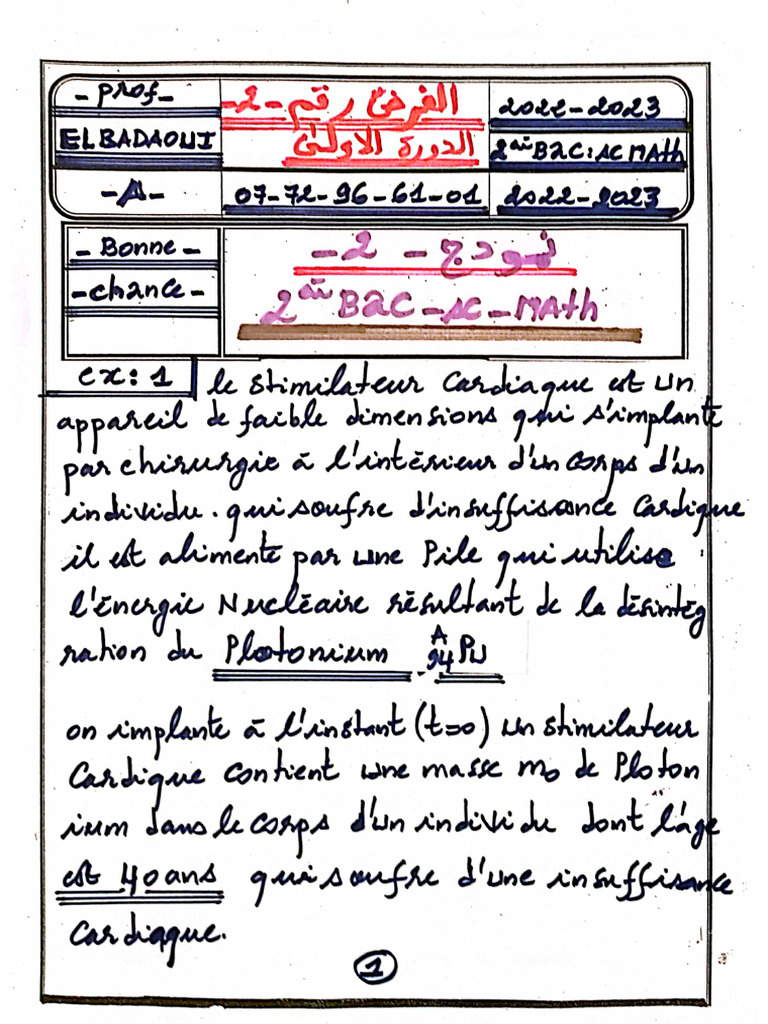 - Prof -
الفرض رقم - 2 -
2022-2023
ELBADAOUI
الدورة الاولى
2ain BAC: SC MATH
- A -
07-72-96-61-01
2022-2023
- Bonne -
نمودج - 2 -
- chance -
2ain BAC - SC - MATH
ex: 1 le stimilateur Cardiaque est un
appareil de faible dimensions qui s'implante
par chirurgie à l'intérieur d'un corps d'un
individu. qui soufre d'insuffisance Cardique
il est alimenté par une Pile qui utilise
l'énergie Nucléaire résultant de la désintég
ration du Plotonium A 94 Pu
on implante à l'instant (t=0) un stimilateur
Cardique contient une masse m0 de Ploton
ium dans le corps d'un individu dont l'âge
est 40 ans qui soufre d'une insuffisance
Cardiaque.
1